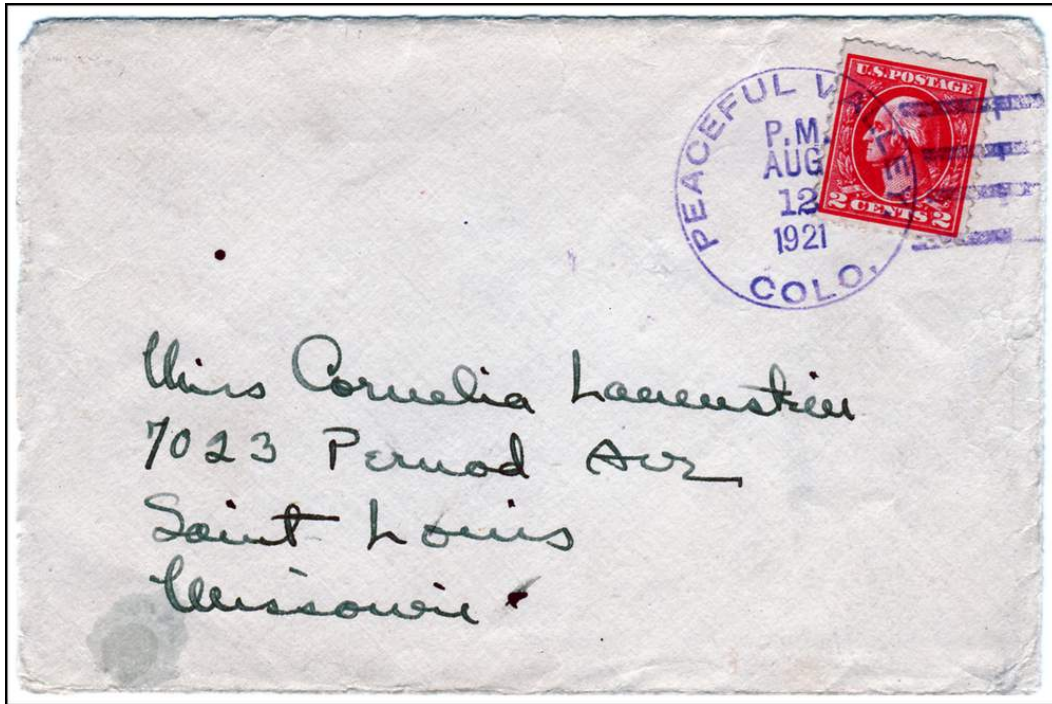 PEACEFUL VALLEY
P.M.
AUG
12
1921
COLO.
U.S. POSTAGE
2 CENTS 2
Miss Cornelia
7023 Pernod Ave
Saint Louis
Missouri